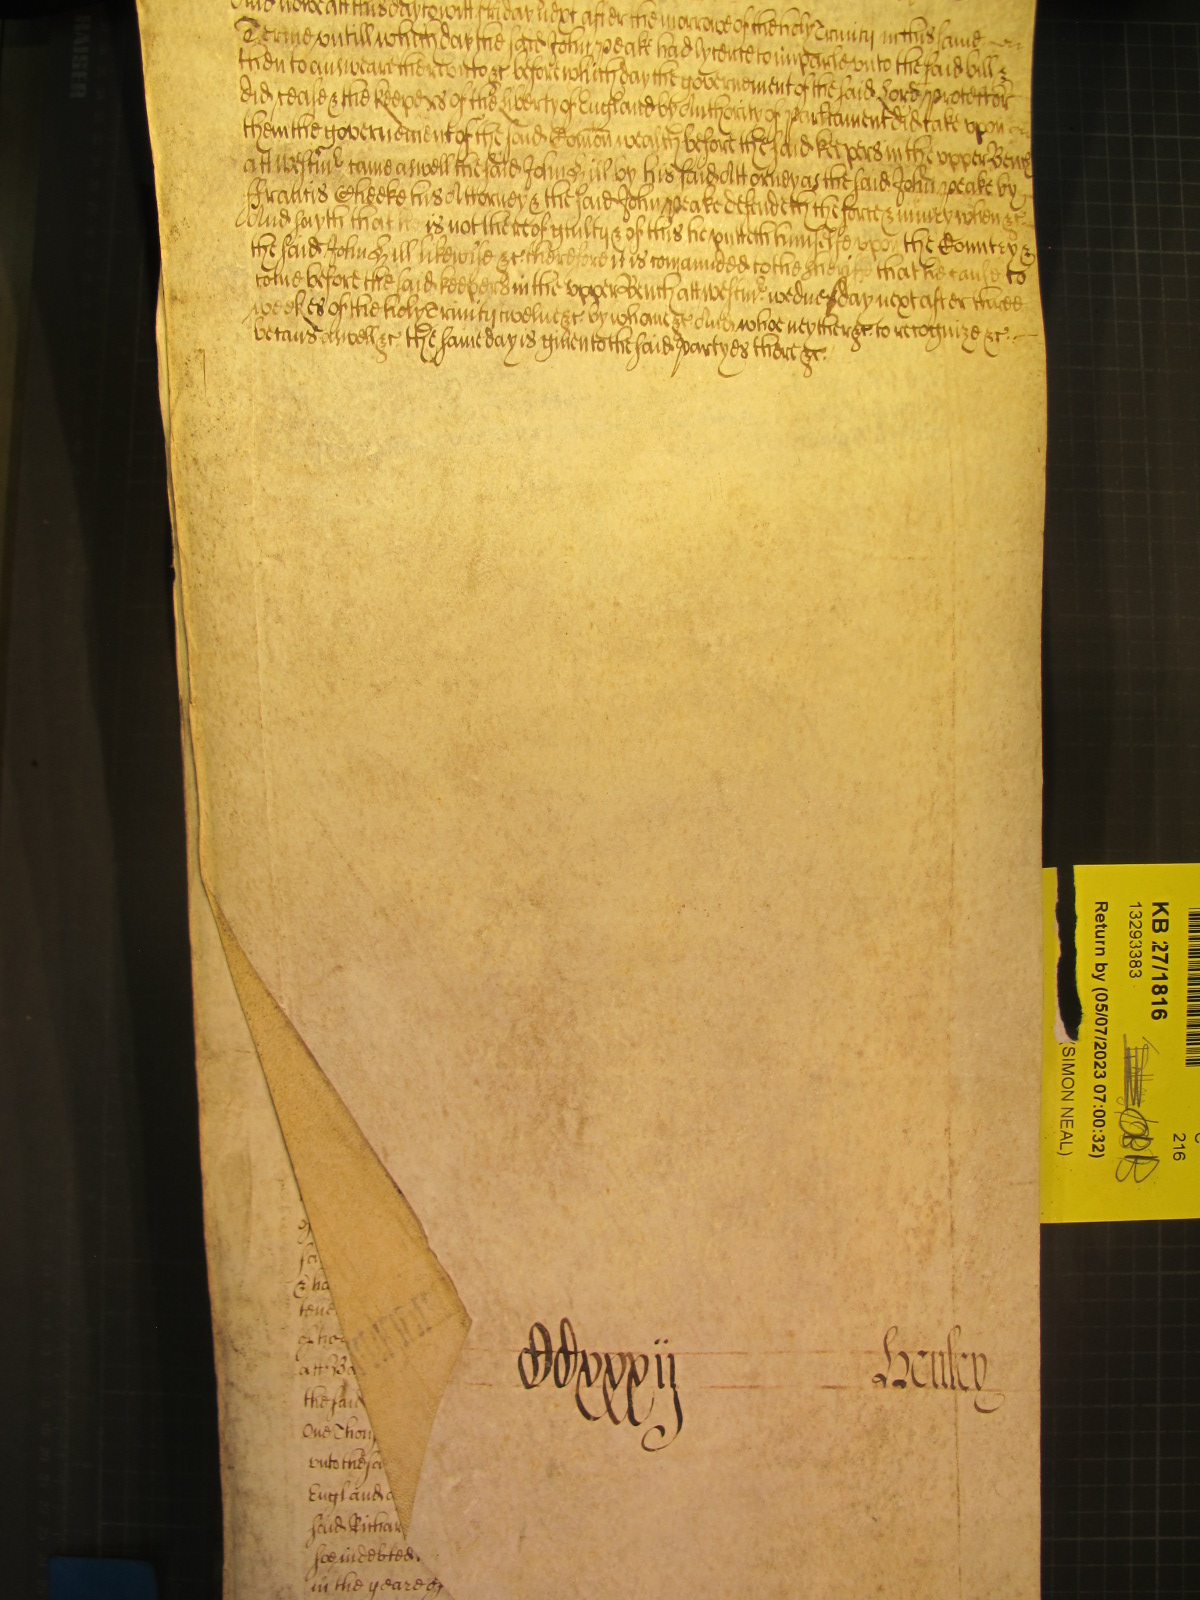 And nowe att this day to witt friday next after the morrowe of the holy Trinity in this same
Terme untill which day the said John Peake had lycence to imparle unto the said bill &
then to answeare thereonto &c before which day the governement of the said Lord Protector
did cease & the keepers of the liberty of England by Authority of Parliament did take upon
them the governement of the said Comon wealth before the said keepers in the upper Bench
att Westmr came aswell the said John Hill by his said Attorney as the said John Peake by
Francis Cheeke his Attorney & the said John Peake defendeth the force & iniury when &c
And sayth that he is not thereof guilty & of this he putteth himselfe upon the Countrey &
the said John Hill likewise &c therefore it is comaunded to the sheriffe that he cause to
come before the said keepers in the upper Bench att Westmr wednesday next after three
weekes of the holy Trinity twelve &c by whome &c And whoe neyther &c to recognize &c
because aswell &c the same day is given to the said partyes there &c
sa
& ha
tene
of ho
att Ba
the said
One Thou
unto the sa
England
said Richar
soe indebted
in the yeare of
CCxxxij
Henley
KB 27/1816
13293383
Return by (05/07/2023 07:00:32)
(SIMON NEAL)
216